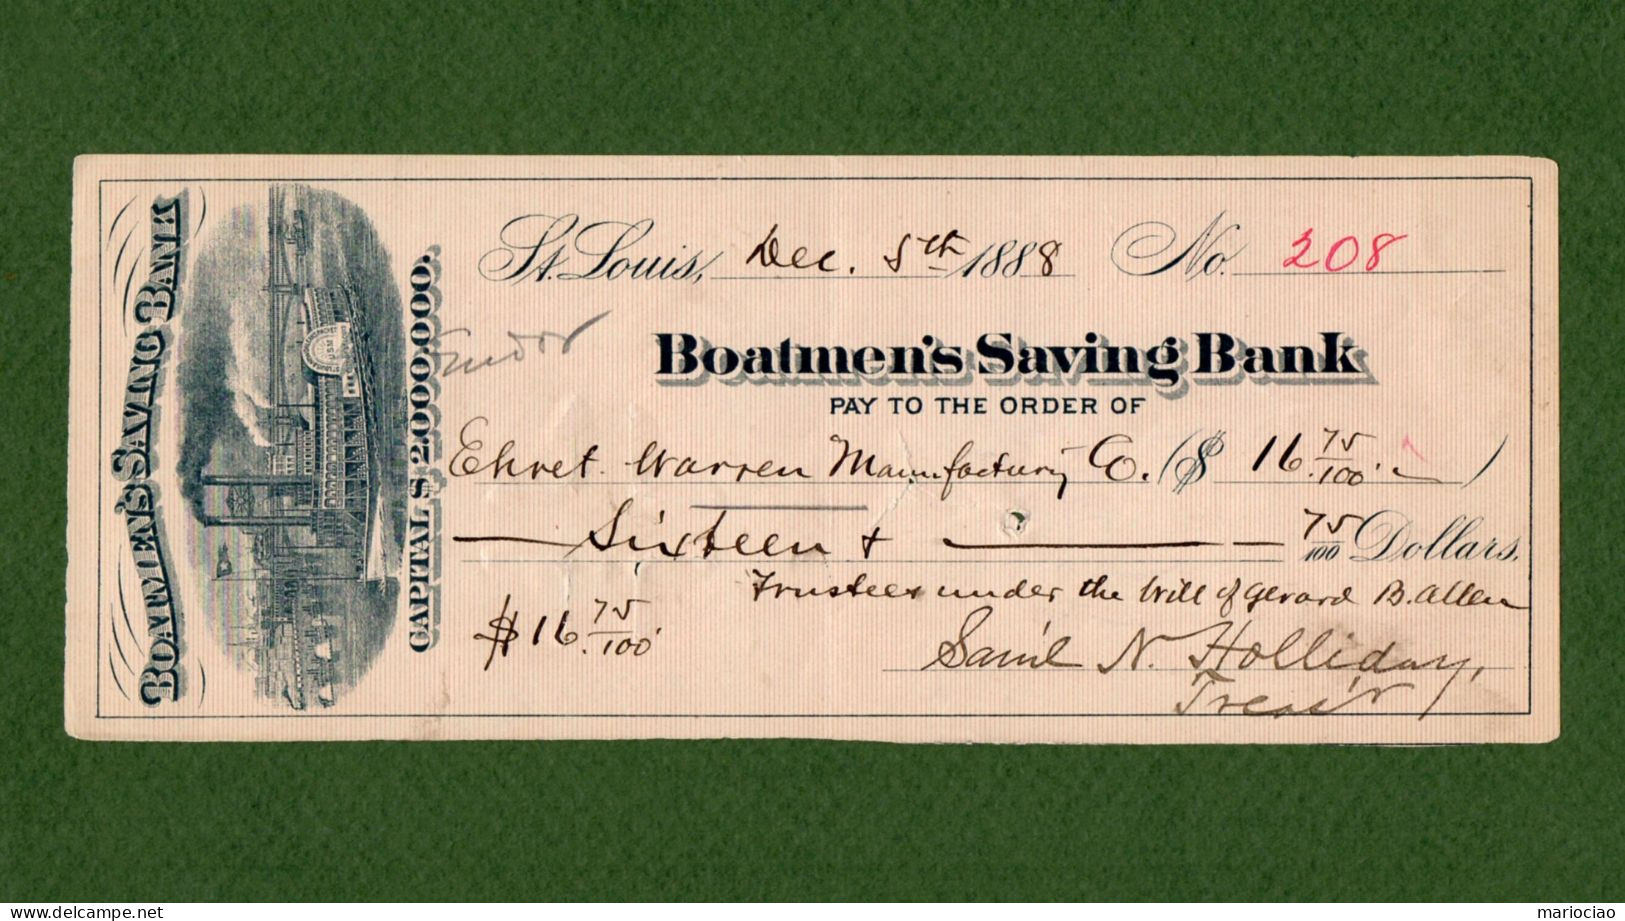 BOATMEN'S SAVING BANK
CAPITAL $ 2.000.000.00.
St. Louis, Dec. 5th 1888 No. 208
Boatmen's Saving Bank
PAY TO THE ORDER OF
Ehret Warren Manufacturing Co. ($ 16. 75/100 )
Sixteen & 75/100 Dollars.
Trustees under the Will of Gerard B. Allen
$ 16. 75/100
Sam'l N. Holliday,
Treas'r
www.delcampe.net
mariociao